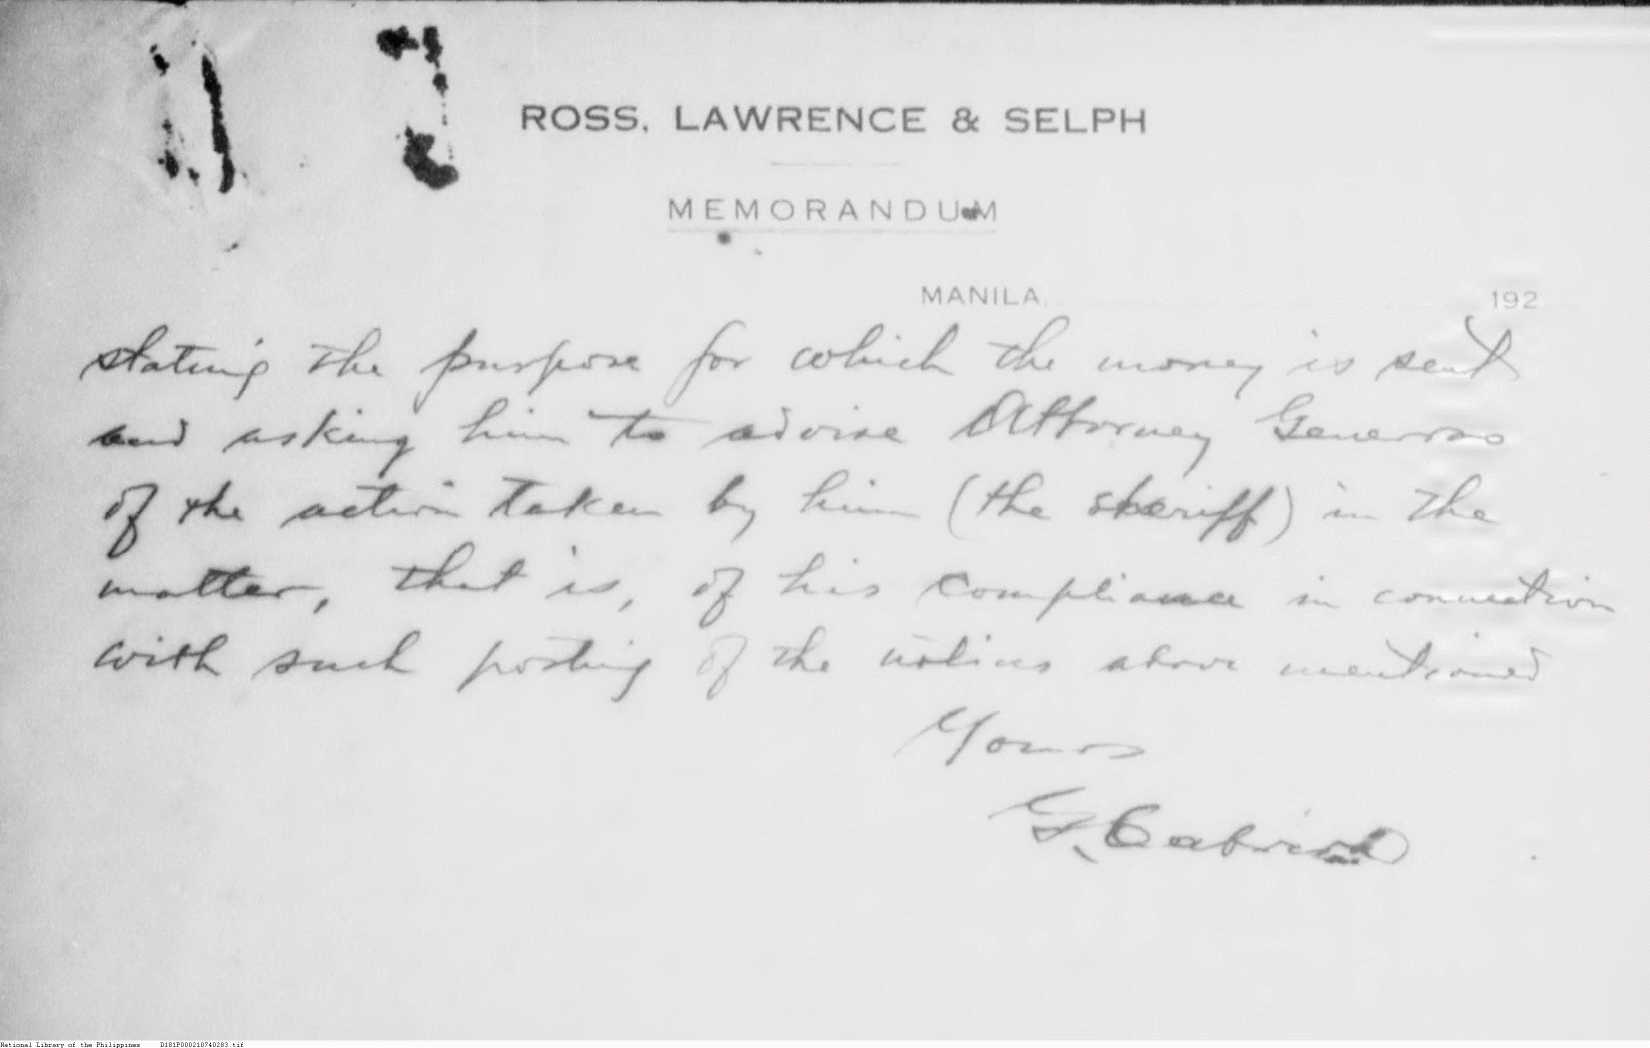 ROSS, LAWRENCE & SELPH
MEMORANDUM
MANILA, 192
stating the purpose for which the money is sent
and asking him to advise Attorney General
of the action taken by him (the sheriff) in the
matter, that is, of his compliance in connection
with such posting of the notices above mentioned
Yours
G.
National Library of the Philippines D181P000210740283.tif